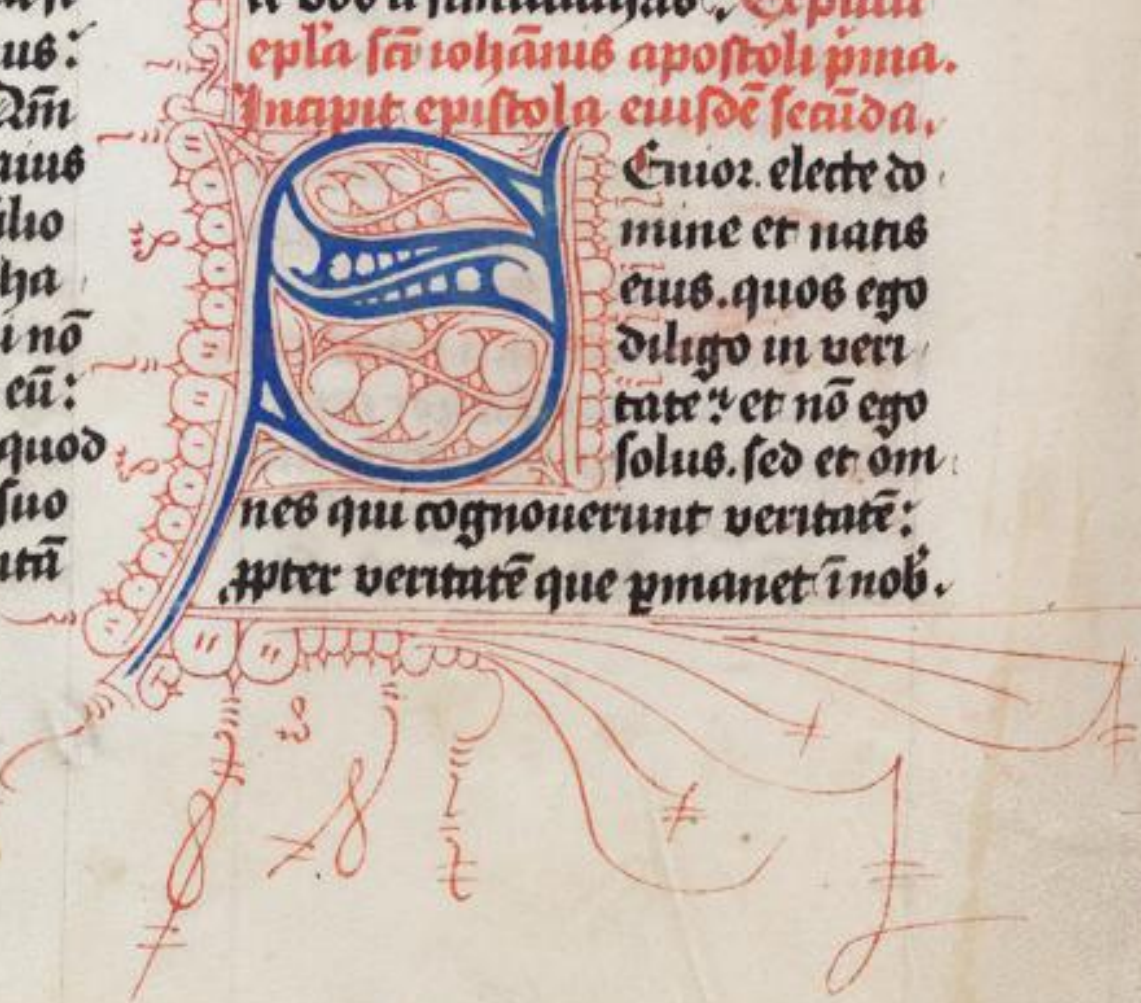 us:
Dn̄i
aius
ilio
ha
i nō
eū:
quod
suo
utā
te vos a simulachris. Explicit
epl'a sc̄i ioħānis apostoli p̄ma.
Incipit epistola eiusdē secūda.
SEnior electe do
mine et natis
eius. quos ego
diligo in veri
tate: et nō ego
solus. sed et om
nes qui cognouerunt veritatē:
ꝓpter veritatē que ꝑmanet ī nob̄.